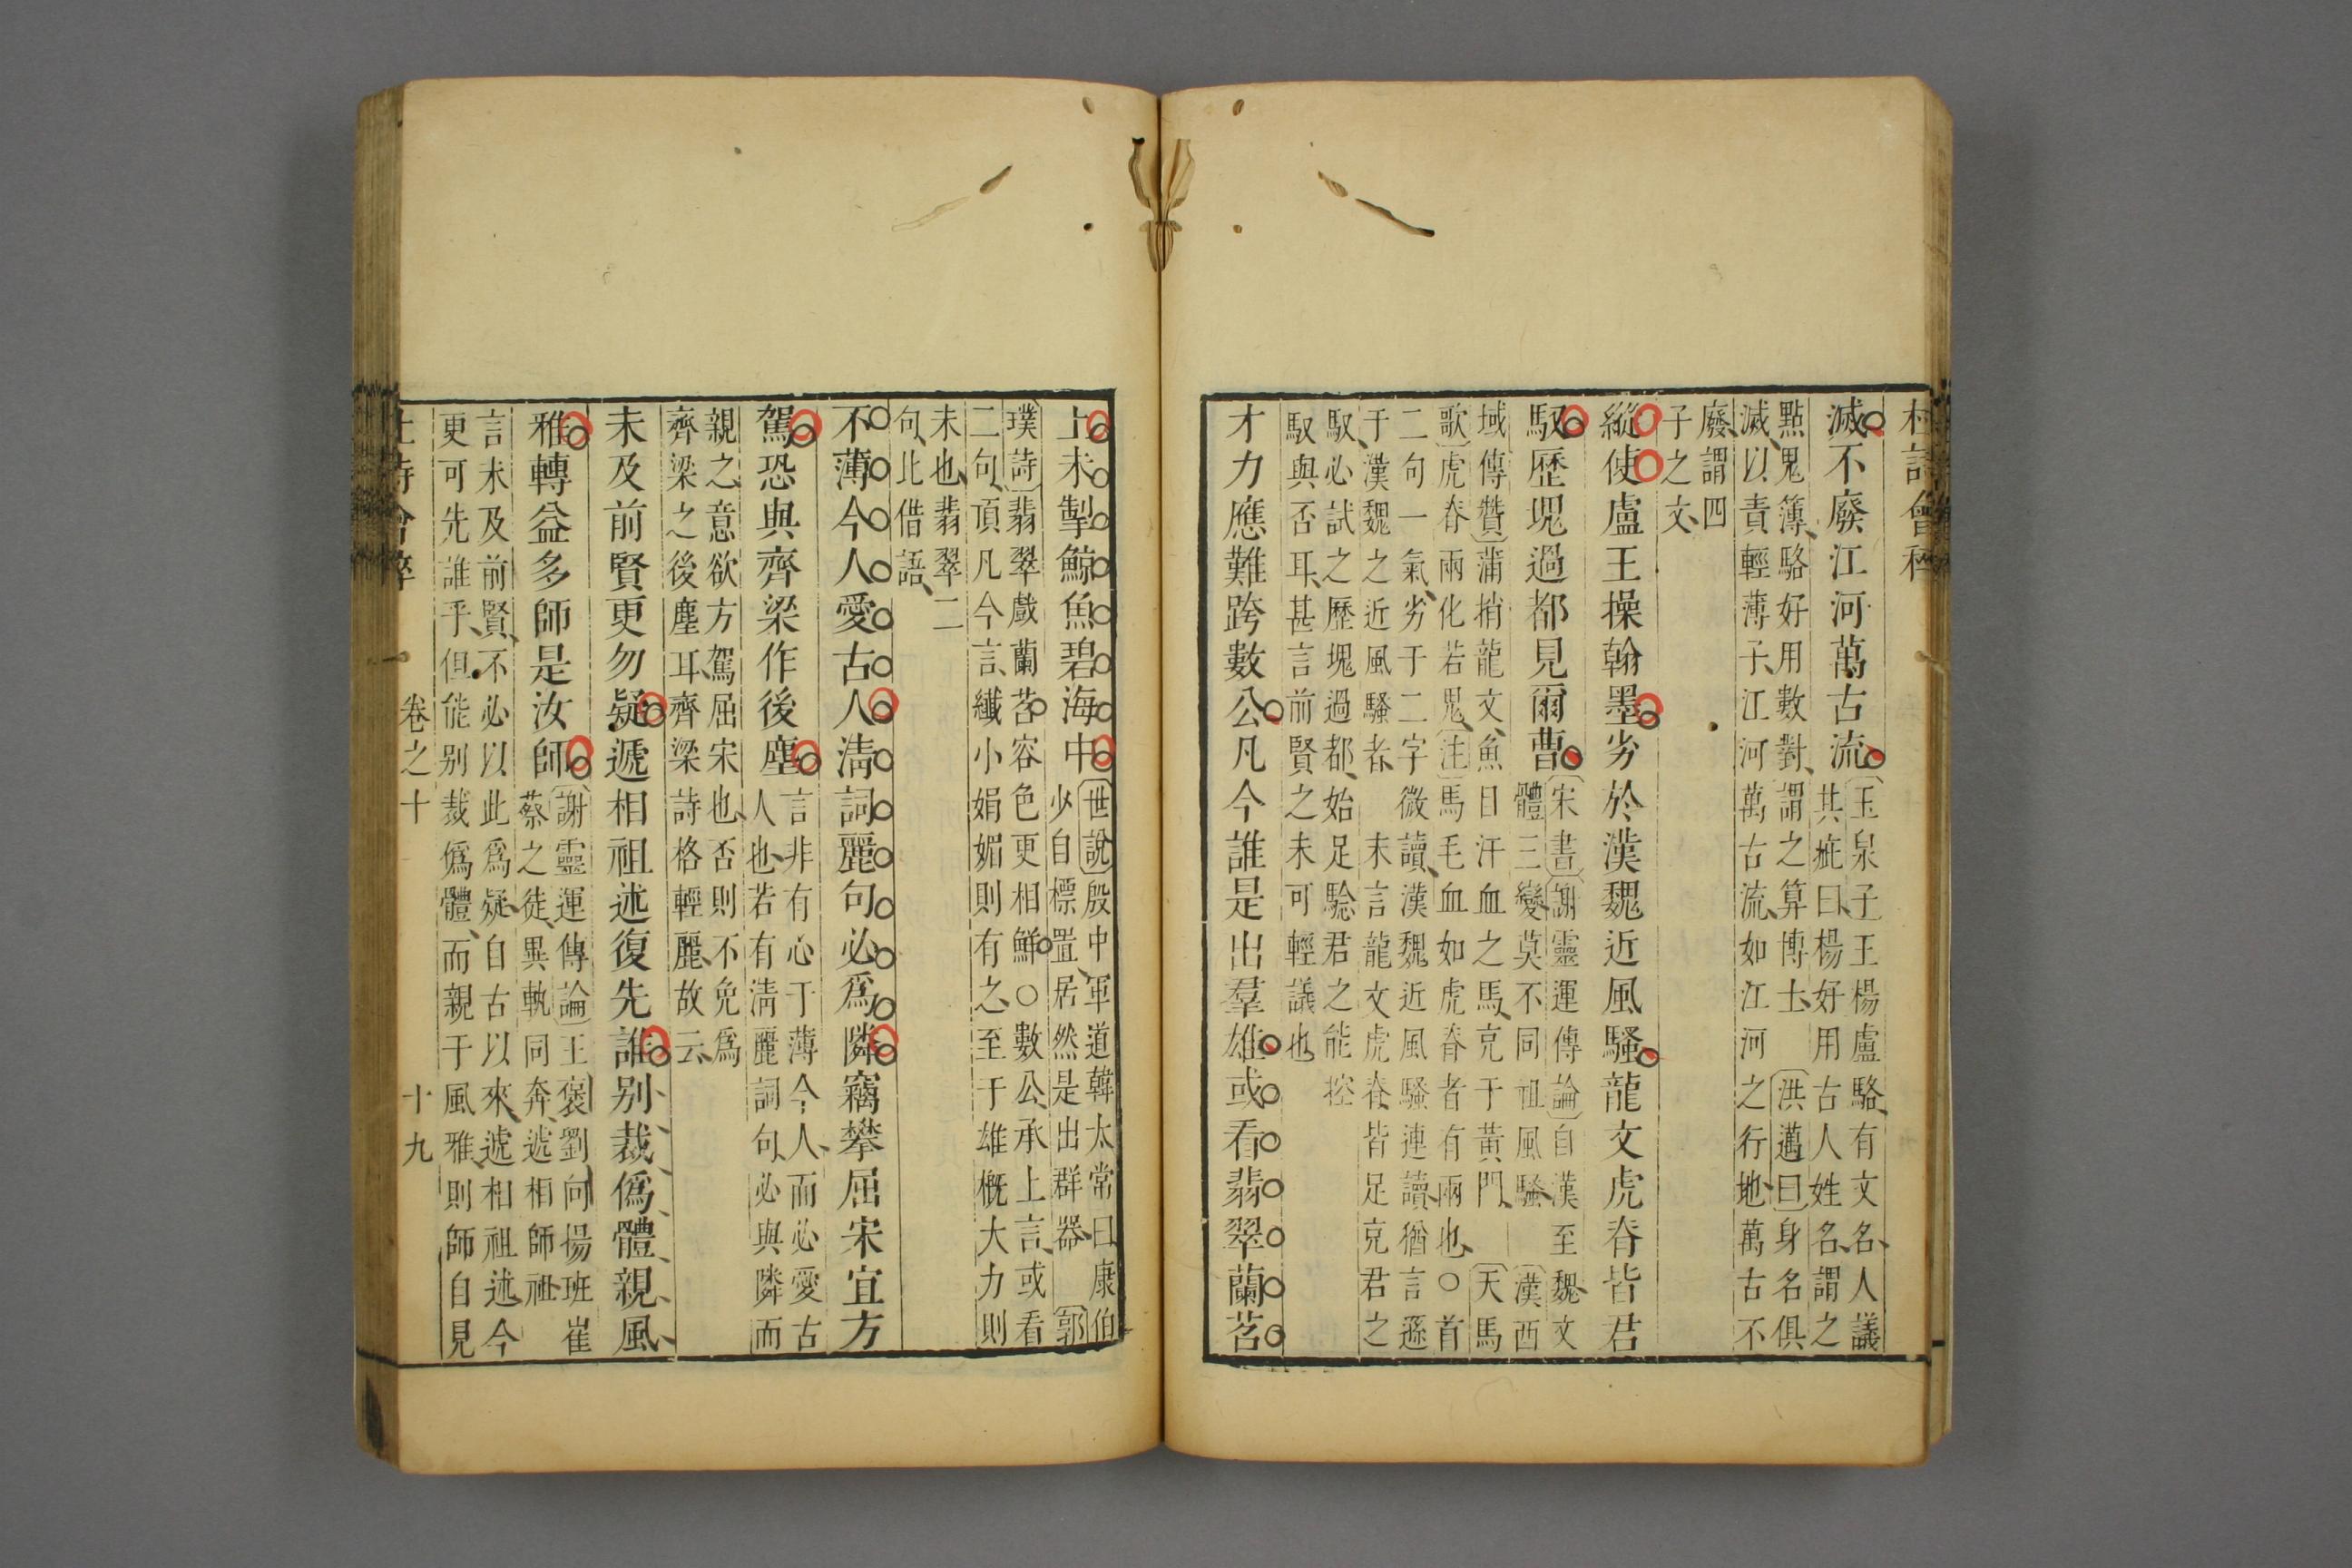 杜詩會稡
滅不廢江河萬古流
玉泉子王楊盧駱有文名人議
其疵曰楊好用古人姓名謂之
點鬼簿駱好用數對謂之算博士洪邁曰身名俱
滅以責輕薄子江河萬古流如江河之行地萬古不
廢謂四
子之文
縱使盧王操翰墨劣於漢魏近風騷龍文虎脊皆君
馭歷塊過都見爾曹
宋書謝靈運傳論自漢至魏文
體三變莫不同祖風騷 漢西
域傳贊蒲梢龍文魚目汗血之馬充于黃門 天馬
歌虎脊兩化若鬼注馬毛血如虎脊者有兩也○首
二句一氣劣于二字微讀漢魏近風騷連讀猶言遜
于漢魏之近風騷者 末言龍文虎脊皆足充君之
馭必試之歷塊過都始足騐君之能控
馭與否耳甚言前賢之未可輕議也
才力應難跨數公凡今誰是出羣雄或看翡翠蘭苕
上未掣鯨魚碧海中
世說殷中軍道韓太常曰康伯
少自標置居然是出群器 郭
璞詩翡翠戲蘭苕容色更相鮮○數公承上言或看
二句頂凡今言纖小娟媚則有之至于雄概大力則
未也翡翠二
句此借語
不薄今人愛古人清詞麗句必爲隣竊攀屈宋宜方
駕恐與齊梁作後塵
言非有心于薄今人而必愛古
人也若有清麗詞句必與隣而
親之意欲方駕屈宋也否則不免爲
齊梁之後塵耳齊梁詩格輕麗故云
未及前賢更勿疑遞相祖述復先誰别裁僞體親風
雅轉益多師是汝師
謝靈運傳論王褒劉向揚班崔
蔡之徒異軌同奔遞相師祖
言未及前賢不必以此爲疑自古以來遞相祖述今
更可先誰乎但能别裁僞體而親于風雅則師自見
杜詩會稡 卷之十 十九